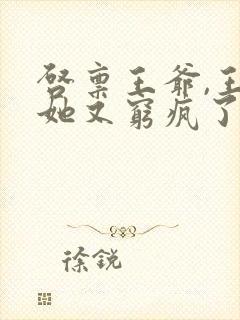 启禀王爷,王
她又窮疯了
徐锐